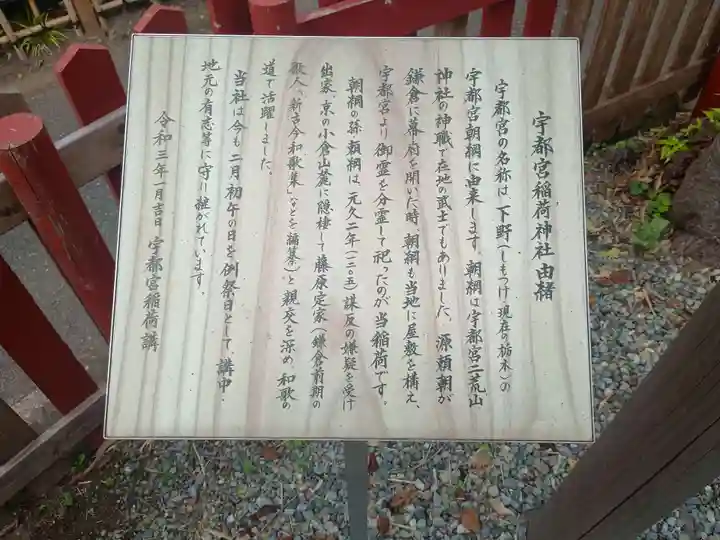 宇都宮稲荷神社由緒
宇都宮の名称は、下野(しもつけ・現在の栃木)の
宇都宮朝綱に由来します。朝綱は宇都宮二荒山
神社の神職で在地の武士でもありました。源頼朝が
鎌倉に幕府を開いた時、朝綱も当地に屋敷を構え、
宇都宮より御霊を分霊して祀ったのが当稲荷です。
朝綱の孫頼綱は、元久二年(一二〇五)謀反の嫌疑を受け
出家、京の小倉山麓に隠棲して藤原定家(鎌倉前期の
歌人。「新古今和歌集」などを編纂)と親交を深め、和歌の
道で活躍しました。
当社は今も二月初午の日を例祭日として、講中・
地元の有志等に守り継がれています。
令和三年一月吉日 宇都宮稲荷講